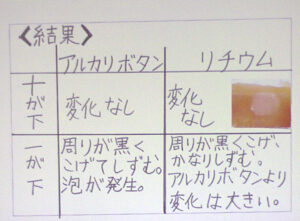 〈結果〉
アルカリボタン
リチウム
十が下
変化なし
変化
なし
一が下
周りが黒く
こげてしずむ。
泡が発生。
周りが黒くこげ、
かなりしずむ。
アルカリボタンより
変化は大きい。